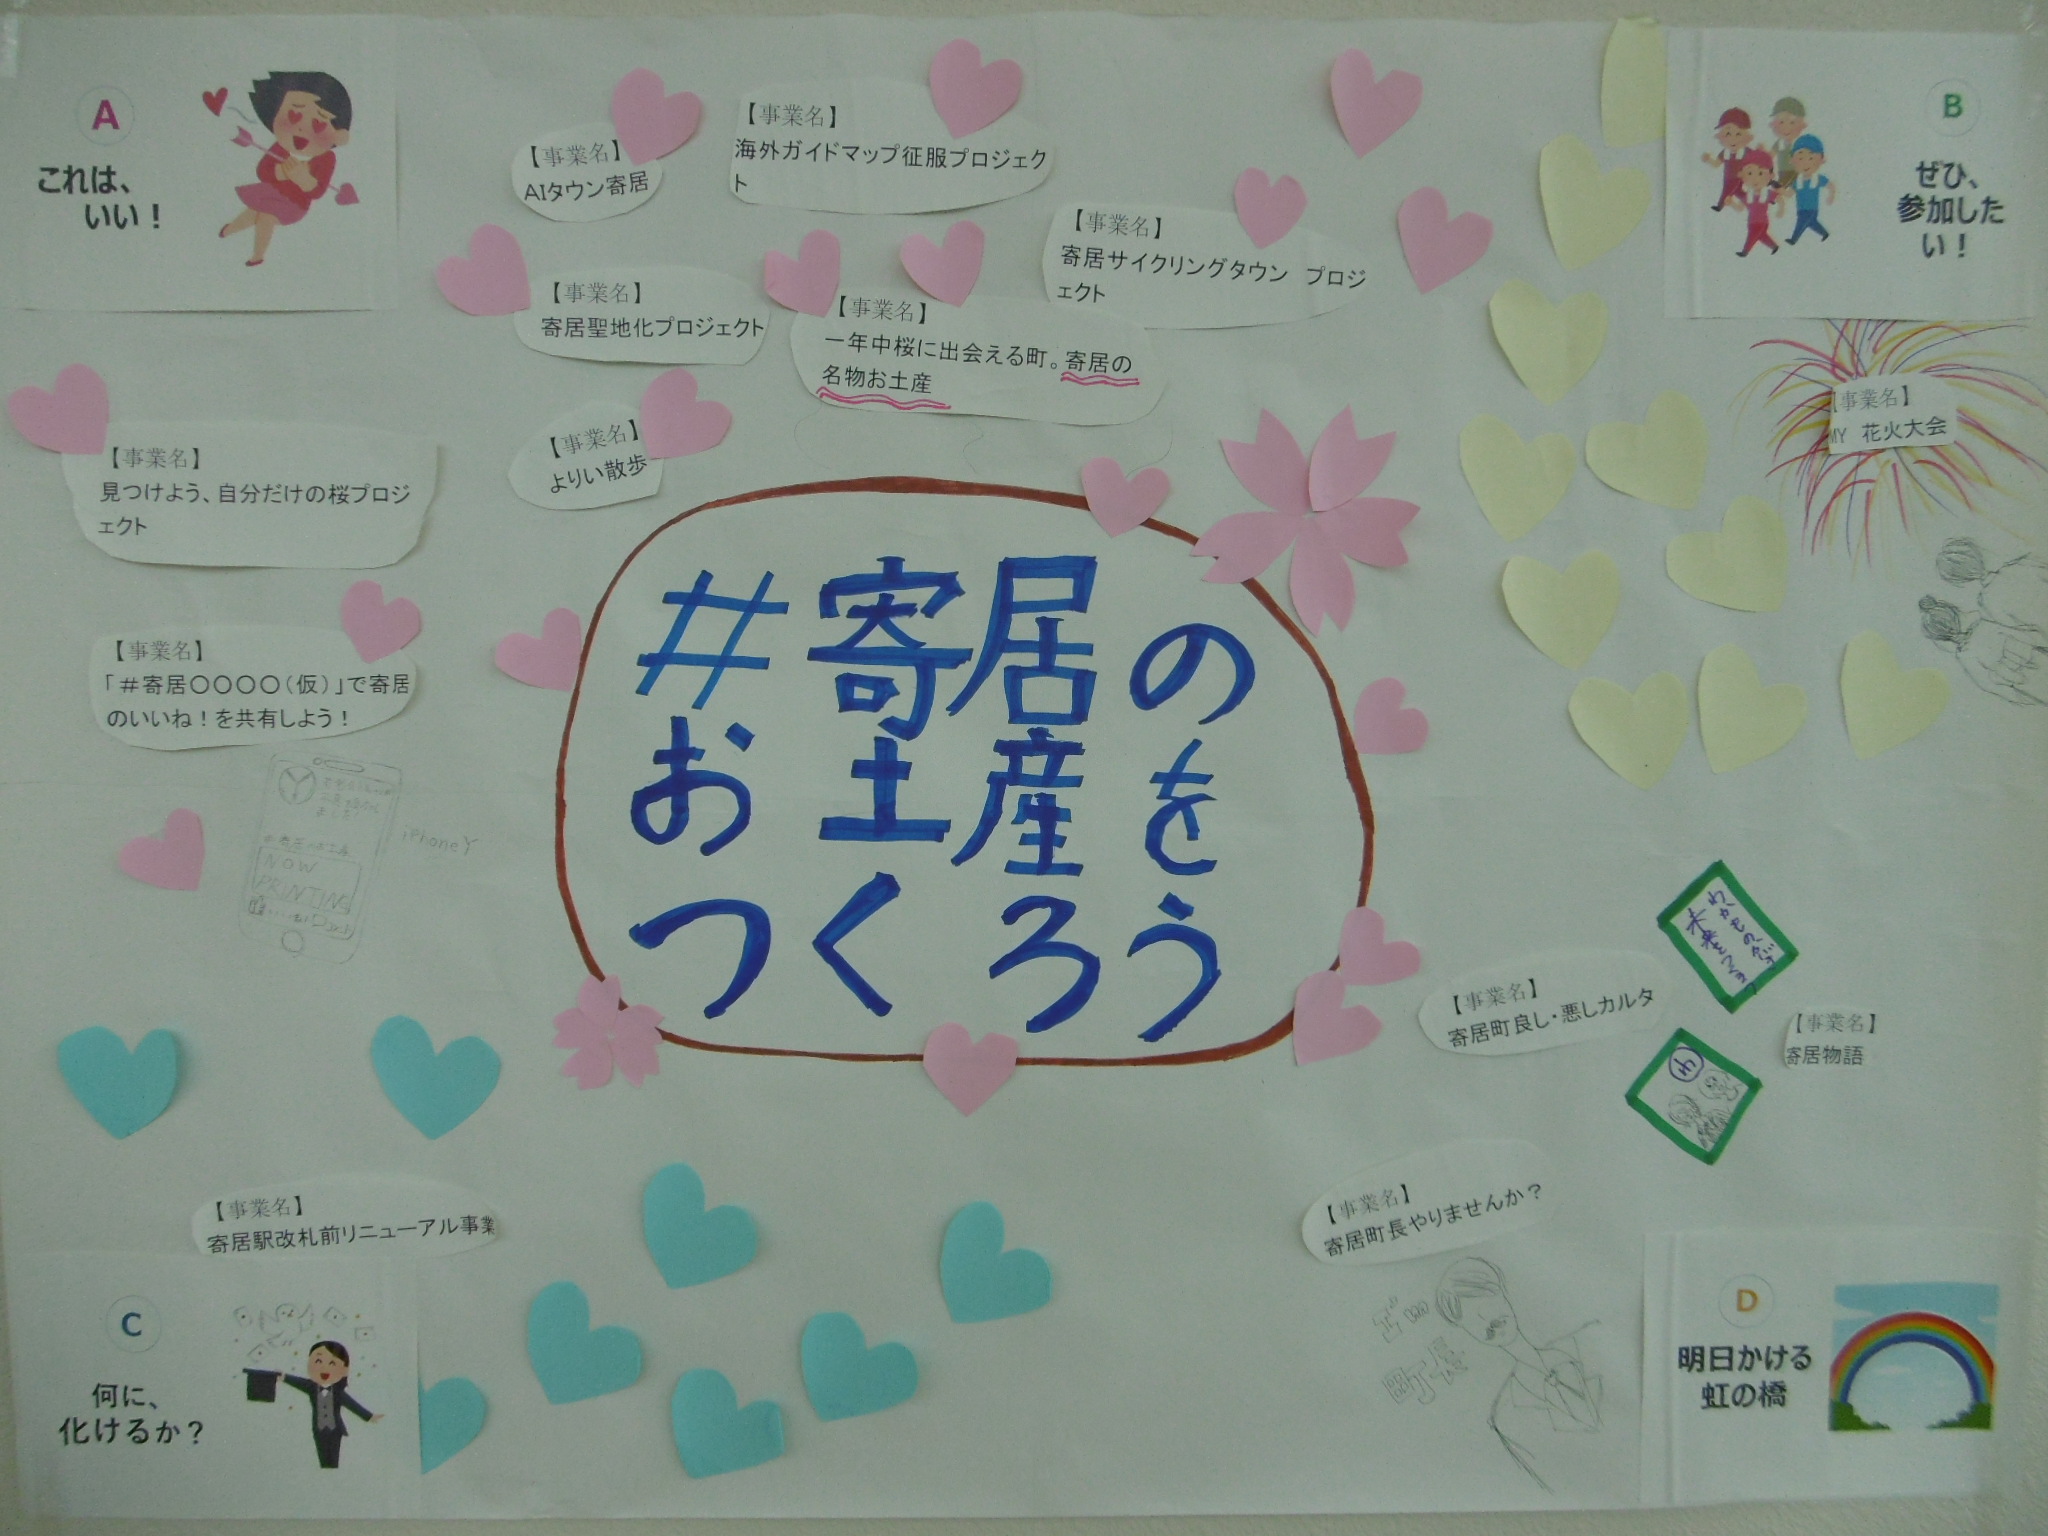 A
これは、
いい！
【事業名】
AIタウン寄居
【事業名】
海外ガイドマップ征服プロジェク
ト
【事業名】
寄居サイクリングタウン　プロジ
ェクト
B
ぜひ、
参加した
い！
【事業名】
寄居聖地化プロジェクト
【事業名】
一年中桜に出会える町。寄居の
名物お土産
【事業名】
MY　花火大会
【事業名】
よりい散歩
【事業名】
見つけよう、自分だけの桜プロジ
ェクト
【事業名】
「＃寄居〇〇〇〇（仮）」で寄居
のいいね！を共有しよう！
#寄居の
お土産を
つくろう
iPhoneY
NOW
PRINTING
【事業名】
寄居町良し・悪しカルタ
わかもの
【事業名】
寄居物語
わ
【事業名】
寄居駅改札前リニューアル事業
【事業名】
寄居町長やりませんか？
町長
C
何に、
化けるか？
D
明日かける
虹の橋